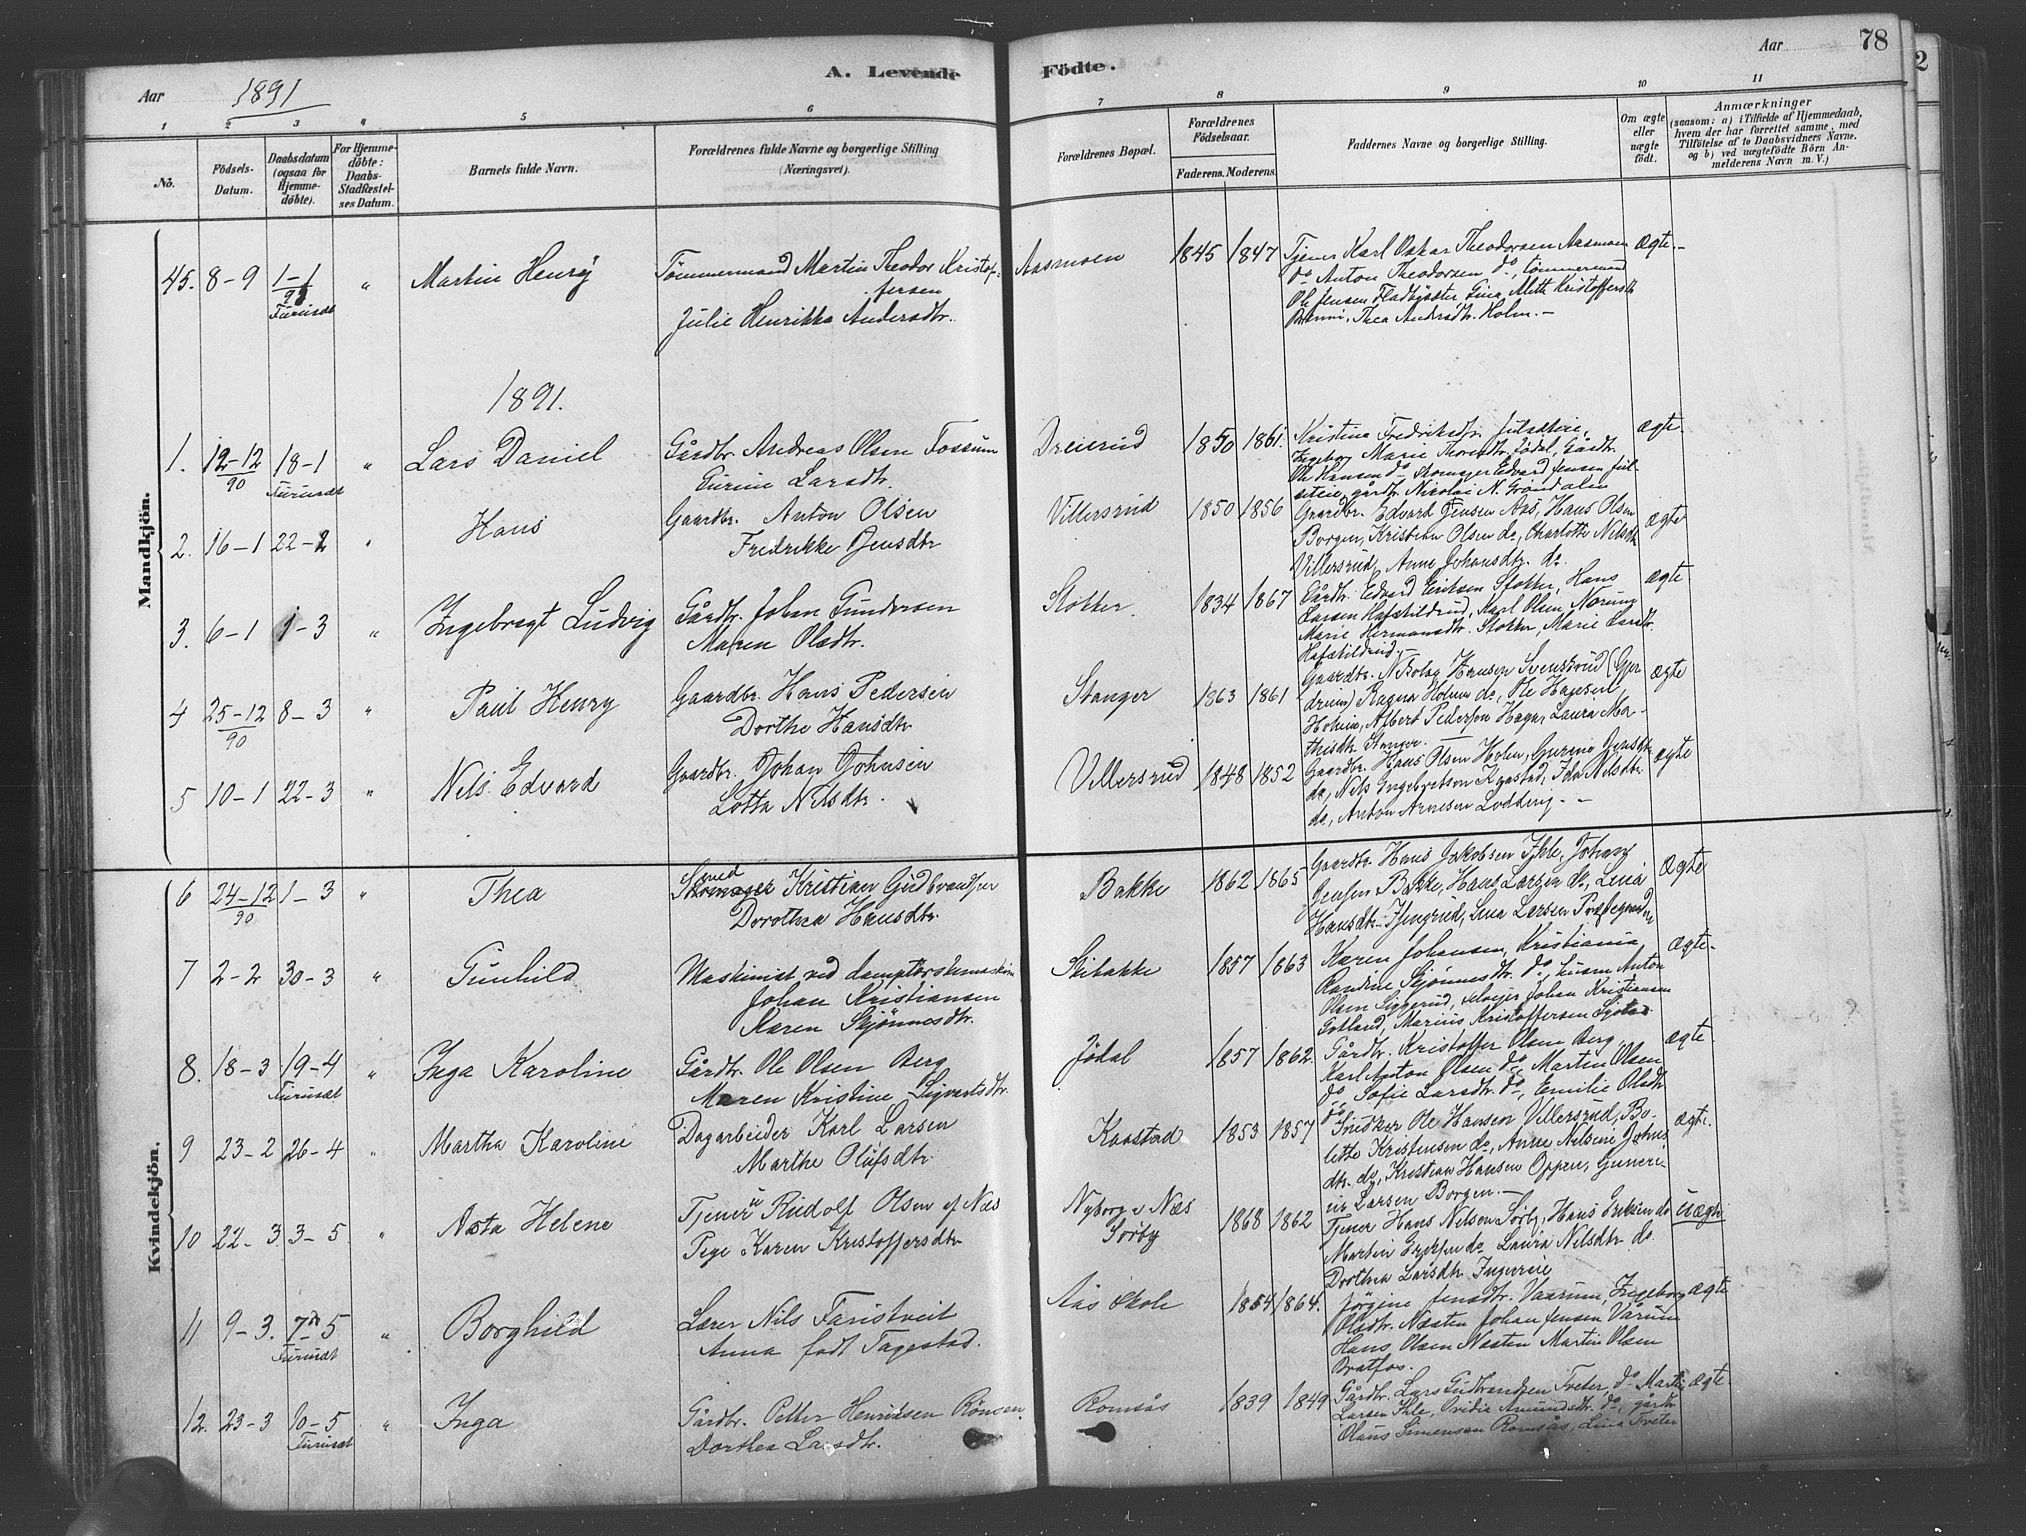 Aar 1891 A. Levende Födte. Aar 78
1 2 3 " 5 6 7 8 9 10 11
No.
Födsels-
Datum.
Daabsdatum
(ogsaa for
Hjemme-
döbte).
For Hjemme-
döbte:
Daabs-
Stadfæstel-
ses Datum.
Barnets fulde Navn.
Forældrenes fulde Navne og borgerlige Stilling
(Næringsvei).
Forældrenes Bopæl.
Forældrenes
Födselsaar.
Faderens. Moderens.
Faddernes Navne og borgerlige Stilling.
Om ægte
eller
uægte
födt.
Anmærkninger
(saasom: a) i Tilfælde af Hjemmedaab,
hvem der har forrettet samme, med
Tilföielse af to Daabsvidners Navne,
og b) ved uægtefödte Börn An-
melderens Navn m. V.)
Mandkjön.
45. 8-9 1-1 " Martin Henry Tømmermand Martin Theodor Kristof-
fersen
Furuset
Julie Henrikka Andersdtr.
Aasmoen 1845 1847 Tjener Karl Oskar Theodorsen Aasmoen ægte.-
do Anton Theodorsen do, tømmermand
Ole Jensen Fladbysæter Gina Mette Kristoffersdtr
Thea Andersdtr. Holm.-
1891.
1. 12-12 18-1 " Lars Daniel Gårdbr. Andreas Olsen Fossum
90 Furuset Gurine Larsdtr.
Dreierud 1850 1861. Kristina Fredriksdtr. ægte.
Ingeborg Marie Thorsdtr. Jødal, Gårdbr.
Ole Hansen do, Skomager Edvard Jensen Jul-
gårdbr. Nikolai N. Grøndalen
2. 16-1 22-2 " Hans Gaardbr. Anton Olsen
Fredrikke Jensdtr
Villersrud 1850 1856 Gaardbr. Edvard Jensen Aas, Hans Olsen ægte
Borgen, Kristian Olsen do, Charlotte Nilsdtr
Villersrud, Anne Johansdtr. do.
3. 6-1 1-3 " Ingebregt Ludvig Gårdbr. Johan Gundersen
Maren Olsdtr.
Stokker. 1834 1867 Gårdbr. Edvard Eriksen Stokker, Hans ægte
Larsen Hafatildrud, Karl Olsen Norum
Marie Hermansdtr. Stokker, Marie Larsdtr.
Hafatildrud.-
4 25-12 8-3 " Paul Henry Gaardbr. Hans Pedersen
90 Dorthe Hansdtr
Stanger 1863 1861 Gaardbr. Hansen Svenstrud (Gjer- ægte
drum) Ragna Holum do, Ole Hansen
Holum, Albert Pedersen Hagar, Laura Ma-
thisdtr. Stanger.-
5 10-1 22-3 " Nils Edvard Gaardbr. Johan Johnsen
Lotta Nilsdtr.
Villersrud 1848 1852 Gaardbr. Hans Olsen Holen, Gurine Jensdtr. ægte
do, Nils Ingebretsen Kaastad, Ida Nilsdtr.
do, Anton Arnesen Lodding.-
Kvindekjön.
6 24-12 1-3 " Thea Smed Kristian Gudbrandsen
90 Dorothea Hansdtr.
Bakke 1862 1865 Gaardbr. Hans Jakobsen Ihle, Johan ægte
Jensen Bakke, Hans Larsen do, Lina
Hansdtr. Lina Larsen Præstegaarden
7 2-2 30-3 " Gunhild Maskinist ved damptærskemaskin
Johan Kristiansen
Karen Skjønnesdtr.
Skibakke 1857 1863 Karen Johansen, Kristiania ægte.
Randine Skjønnesdtr. do, husm. Anton
Olsen Siggerud, Johan Kristiansen
Gotland, Marius Kristoffersen
8. 18-3 19-4 " Inga Karoline Gårdbr. Ole Olsen Berg
Furuset Maren Kristine Sigvartsdtr.
Jødal 1857 1862. Gårdbr. Kristoffer Olsen Berg, ægte.
Karl Anton Olsen do, Martin Olsen
do, Sofie Larsdtr. do, Emilie Olsdtr
do
9 23-2 26-4 " Martha Karoline Dagarbeider Karl Larsen
Marthe Olufsdtr.
Kaastad 1853 1857 Snedker Ole Hansen Villersrud, Bo- ægte.
lette Kristensen do, Anne Nilsine Johns
dtr. do, Kristian Hansen Oppen, Guneri-
us Larsen Borgen.-
10 22-3 3-5 " Asta Helene Tjener Rudolf Olsen af Næs
Pige Karen Kristoffersdtr
Nyborg v Næs
Sørby
1868 1862 Tjener Hans Nilsen Sørby, Hans Eriksen do uægte
Martin Eriksen do Laura Nilsdtr do
Dorthea Larsdtr
11 9-3. 7-5 " Borghild Lærer Nils Faristveit
Furuset Anna født Tagestad.
Aas Skole 1854 1864. Jørgine Jensdtr. Vaarum, Ingeborg ægte
Olsdtr. Næsten Johan Jensen Vårum
Hans Olsen Næsten Martin Olsen
Bratfos.
12. 23-3 10-5 " Inga Gårdbr. Petter Henriksen Rønsen.
Furuset Dorthea Larsdtr.
Romsås 1839 1849 Gårdbr. Lars Gudbrandsen Tveter, do Martin ægte.
Larsen Ihle, Ovidie Amundsdtr. do, gårdbr
Olaus Simensen Romsås, Lina Tveter